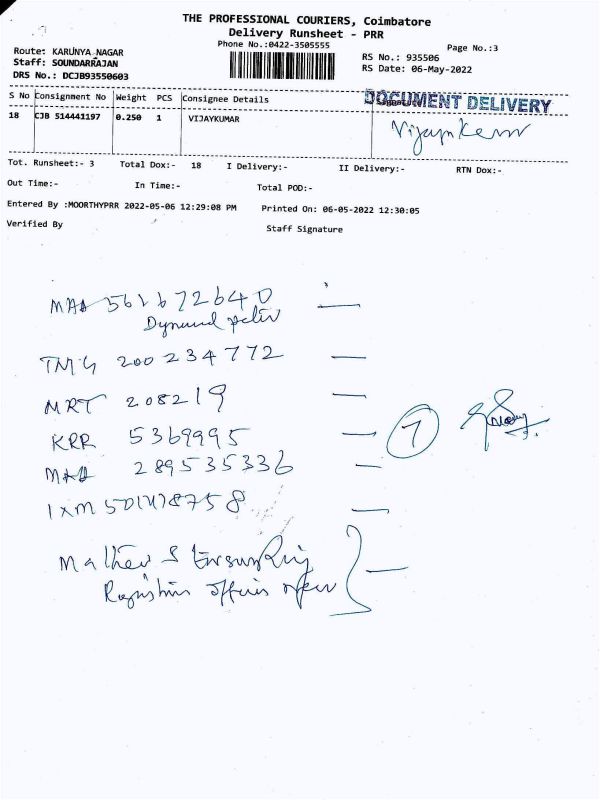 THE PROFESSIONAL COURIERS, Coimbatore
Delivery Runsheet - PRR
Phone No.:0422-3505555
Page No.:3
Route: KARUNYA NAGAR
Staff: SOUNDARRAJAN
DRS No.: DCJB93550603
RS No.: 935506
RS Date: 06-May-2022
S No Consignment No Weight PCS Consignee Details Signature
DOCUMENT DELIVERY
18 CJB 514441197 0.250 1 VIJAYKUMAR
Tot. Runsheet:- 3 Total Dox:- 18 I Delivery:- II Delivery:- RTN Dox:-
Out Time:- In Time:- Total POD:-
Entered By :MOORTHYPRR 2022-05-06 12:29:08 PM Printed On: 06-05-2022 12:30:05
Verified By Staff Signature
MAA 561672640 —
TMG 200234772 —
MRT 208219 —
KRR 5369995 — 7
MAA 289535336 —
IXM 501418758 —
Mathew S